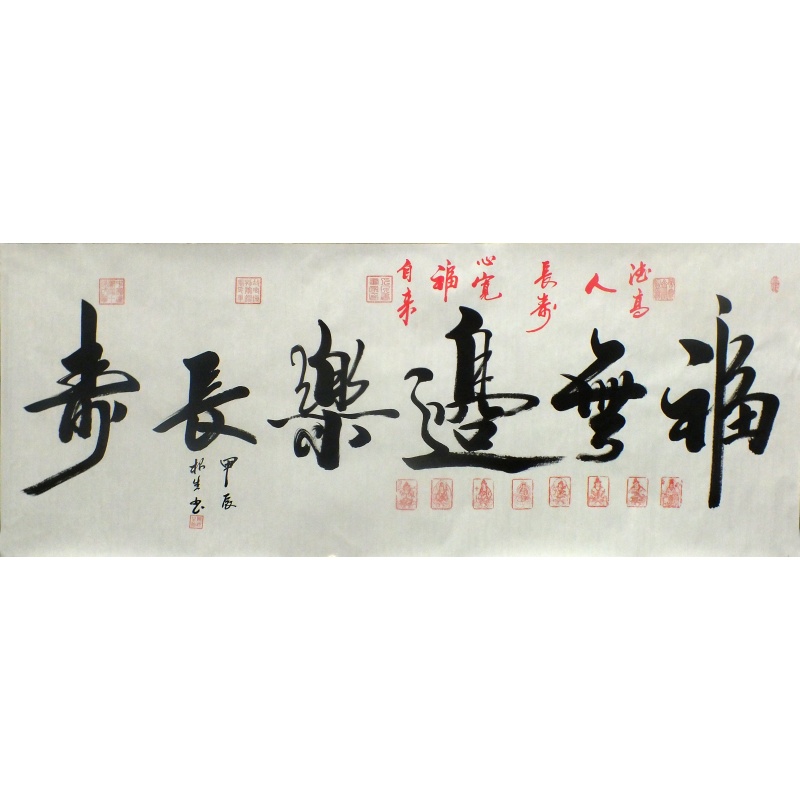 福無邊樂長壽
德高
人
長壽
心寬
福
自来
甲辰
松生书